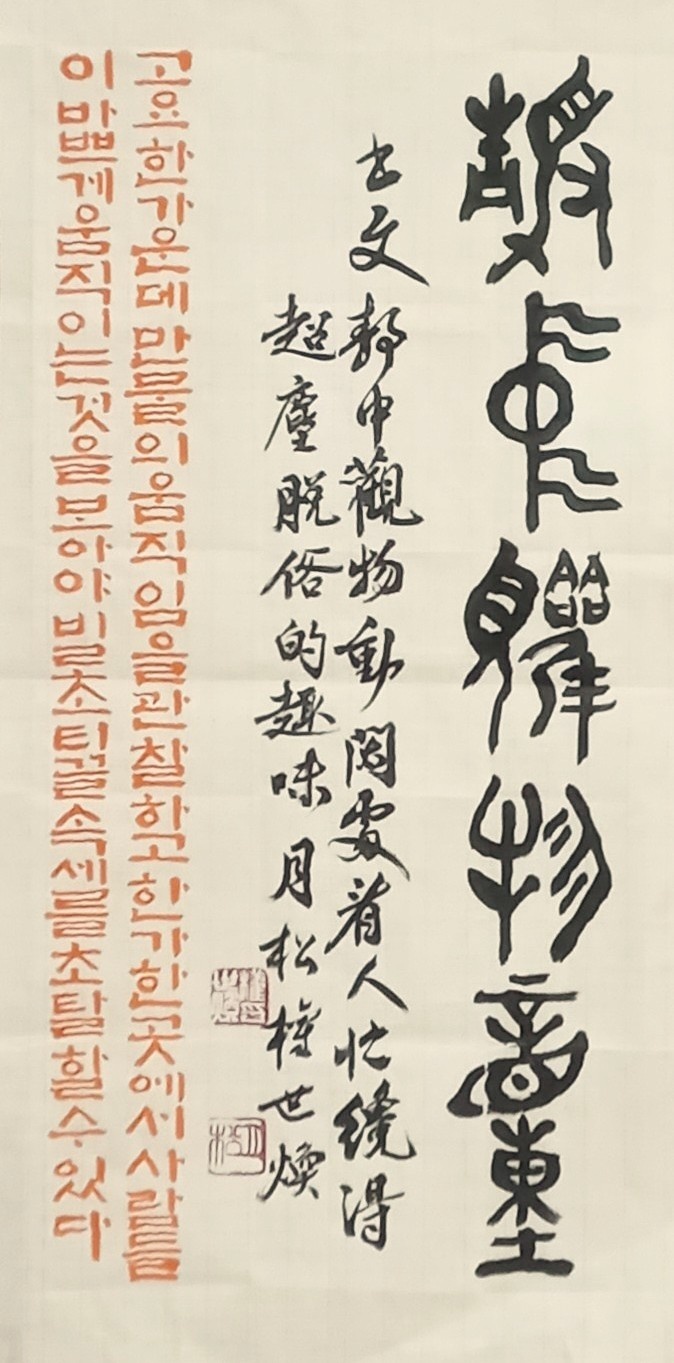 靜中觀物動
古文 靜中觀物動 閑處看人忙 纔得
超塵脫俗的趣味 月松 權世煥
고요한가운데만물의움직임을관찰하고한가한곳에서사람들
이바쁘게움직이는것을보아야빌초티끌속세를초탈할수있다